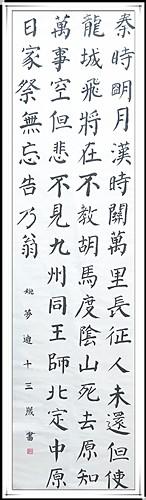 秦時明月漢時關萬里長征人未還但使
龍城飛將在不教胡馬度陰山死去原知
萬事空但悲不見九州同王師北定中原
日家祭無忘告乃翁
姚夢迪十三歲書